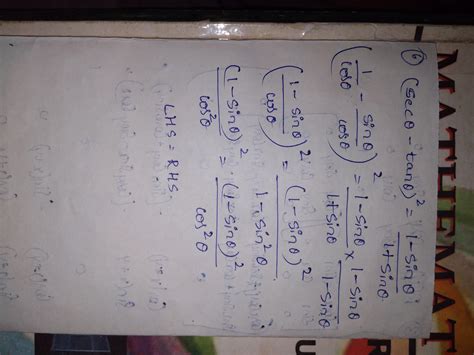 MATHEMAT
⑥ (secθ - tanθ)² = (1-Sinθ)/(1+Sinθ)
(1/cosθ - Sinθ/cosθ)² = (1-Sinθ)/(1+Sinθ) × (1-Sinθ)/(1-Sinθ)
((1-Sinθ)/cosθ)² = (1-Sinθ)²/(1-Sin²θ)
(1-Sinθ)²/cos²θ = (1-Sinθ)²/cos²θ
LHS = RHS